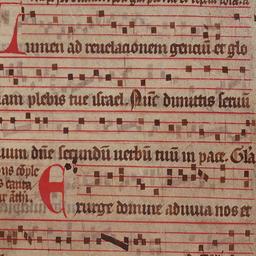 Lumen ad reuelationem gentiũ et glo
iam plebis tue israel. Nũc dimittis seruũ
uum dñe secundũ uerbũ tuũ in pace. Gl̃a
Exurge domine adiuua nos et